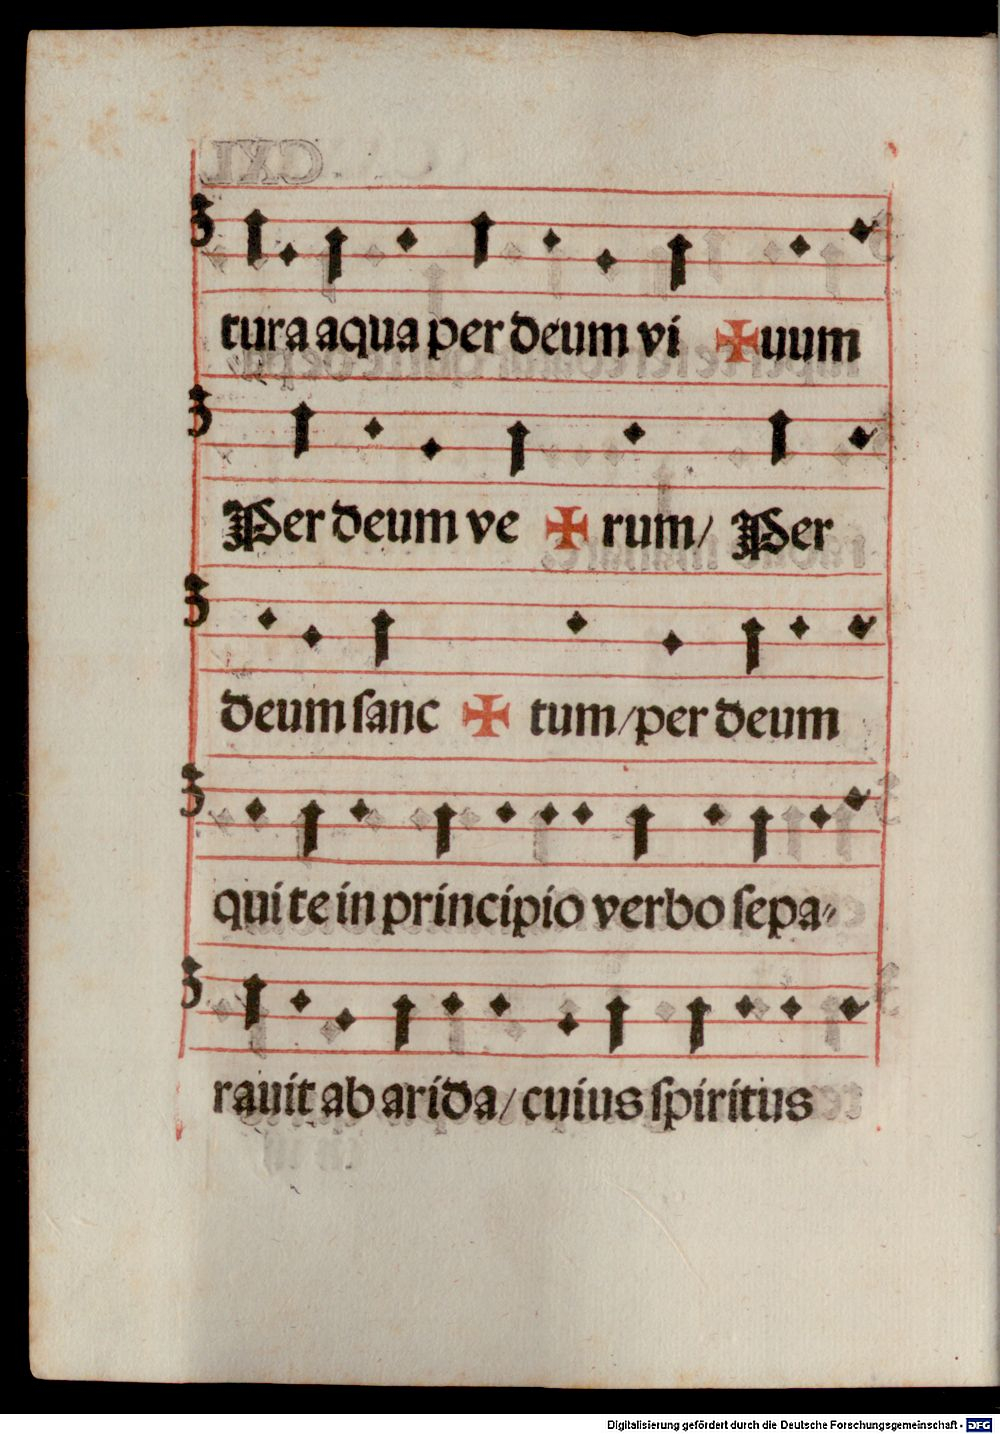 CXL
tura aqua per deum vi ✠ uum
Per deum ve ✠ rum/ Per
deum ſanc ✠ tum/per deum
qui te in principio verbo ſepa⸗
rauit ab arida/ cuius ſpiritus
Digitalisierung gefördert durch die Deutsche Forschungsgemeinschaft - DFG